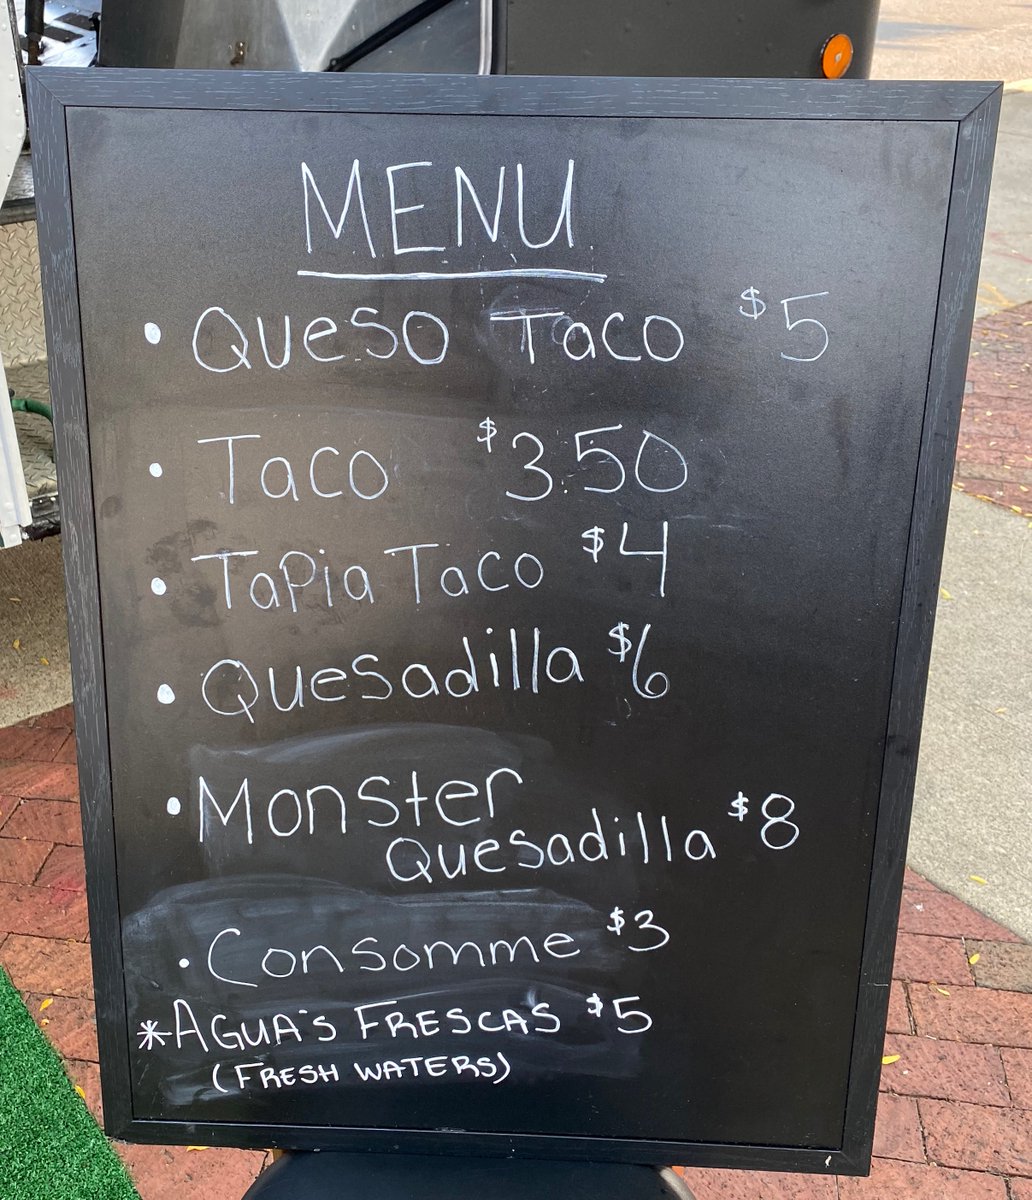 MENU
• Queso Taco $5
• Taco $3.50
• Tapia Taco $4
• Quesadilla $6
• Monster
Quesadilla $8
• Consomme $3
*AGUA'S FRESCAS $5
(FRESH WATERS)